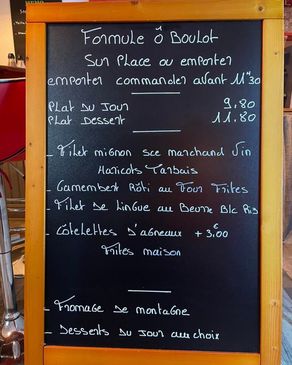 Formule Ô Boulot
Sur Place ou emporter
emporter commander avant 11h30
Plat du Jour 9.80
Plat Dessert 11.80
- Filet mignon sce marchand Vin
Haricots Tarbais
- Camembert Rôti au Four Frites
- Filet de Lingue au Beurre Blc Ris
- Côtelettes d'agneaux + 3€00
Frites maison
- Fromage de montagne
- Desserts du Jour au choix